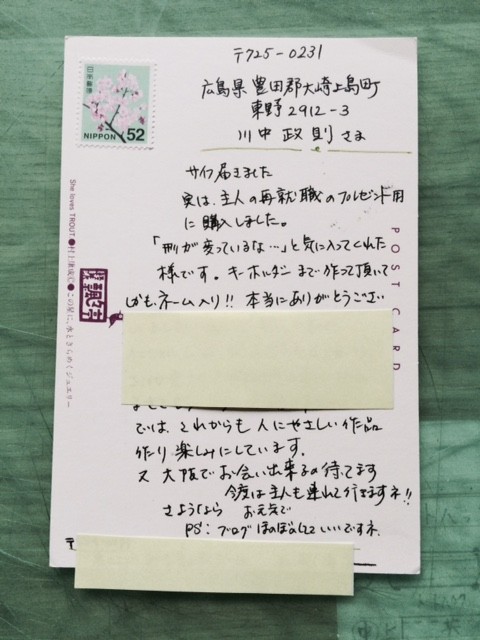 〒725-0231
広島県豊田郡大崎上島町
東野2912-3
川中政則さま
日本郵便
NIPPON 52
サイフ届きました
実は、主人の再就職のプレゼント用
に購入しました。
「形が変っているな…」と気に入ってくれた
様です。キーホルダーまで作って頂いて
しかも、ネーム入り!!本当にありがとうござい
では、これからも人にやさしい作品
作り楽しみにしています。
又大阪でお会い出来るの待てます
今度は主人も連れて行きますネ!!
さようなら お元気で
PS:ブログほのぼのしてていいですネ.
POST CARD
She loves TROUT●村上津成(C)●この星に、水ときらめくジュエリー
〒